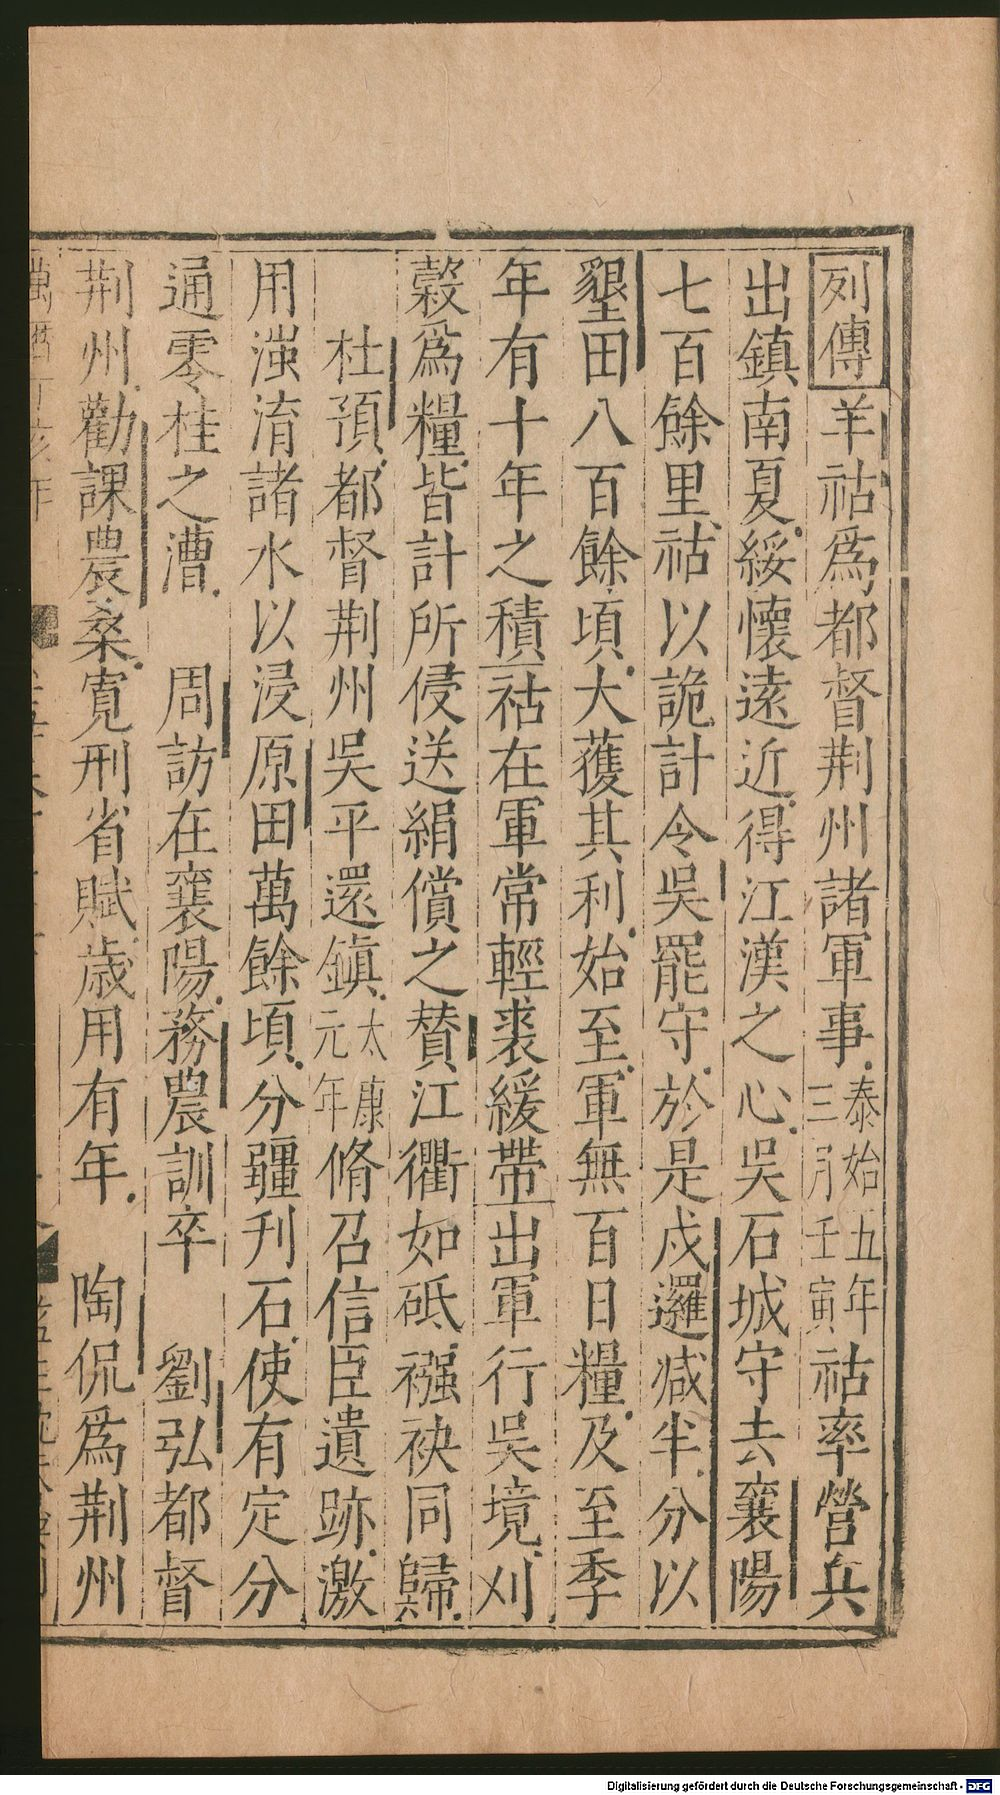 列傳 羊祜爲都督荆州諸軍事 泰始五年三月壬寅 祜率營兵
出鎮南夏綏懷遠近得江漢之心吳石城守去襄陽
七百餘里祜以詭計令吳罷守於是戍邏减半分以
墾田八百餘頃大獲其利始至軍無百日糧及至季
年有十年之積祜在軍常輕裘緩帶出軍行吳境刈
穀爲糧皆計所侵送絹償之贊江衢如砥襁袂同歸
杜預都督荆州吳平還鎮 太康元年 脩召信臣遺跡激
用滍淯諸水以浸原田萬餘頃分疆刋石使有定分
通零桂之漕 周訪在襄陽務農訓卒 劉弘都督
荆州勸課農桑寛刑省賦歳用有年 陶侃爲荆州
Digitalisierung gefördert durch die Deutsche Forschungsgemeinschaft - DFG